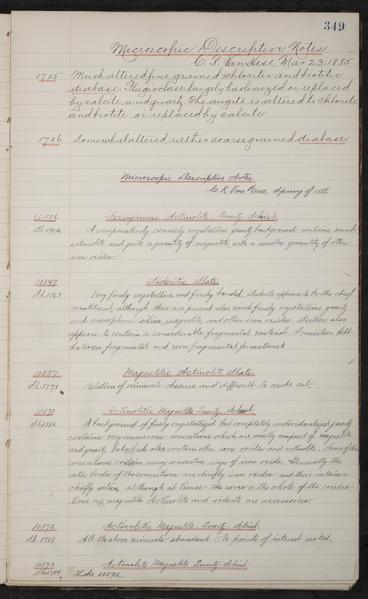 349
Microscopic Descriptive Notes
C. R. Van Hise, Mar. 23, 1885
1705 Much altered fine grained chloritic and biotitic
diabase. Plagioclase largely kaolinized or replaced
by calcite and quartz. The augite is altered to chlorite
and biotite or replaced by calcite
1706 Somewhat altered rather coarse grained diabase
Microscopic Descriptive Notes
C. R. Van Hise Spring of 1888.
Ferruginous Actinolite Quartz Schist
A comparatively coarsely crystalline quartz background contains much
actinolite and quite a quantity of magnetite, with a smaller quantity of other
iron oxides.
10547 Sideritic Slate
Very finely crystalline and finely banded. Siderite appears to be the chief
constituent, although there are present also much finely crystalline quartz
and amorphous silica, magnetite, and other iron oxides. Section also
appears to contain a considerable fragmental material. Transition
between fragmental and non fragmental formations
10557 Magnetitic Actinolite Slate
Sl. 5171 Relation of minerals obscure and difficult to work out
10571 Actinolitic Magnetite Quartz Schist
A background of finely crystallized but completely individualized quartz
contains very numerous concretions which are mostly composed of magnetite
and quartz but which also contain other iron oxides and actinolite. Some of the
concretions contain many successive rings of iron oxide. Generally the
outer border of the concretions are chiefly iron oxides and their interiors
chiefly silica, although at times the cores or the whole of the concre-
tions are magnetite. Actinolite and siderite are accessories.
10572 Actinolitic Magnetite Quartz Schist
Sl. 5183 All the above minerals abundant. No points of interest noted.
10573 Actinolite Magnetite Quartz Schist
Like 10572.